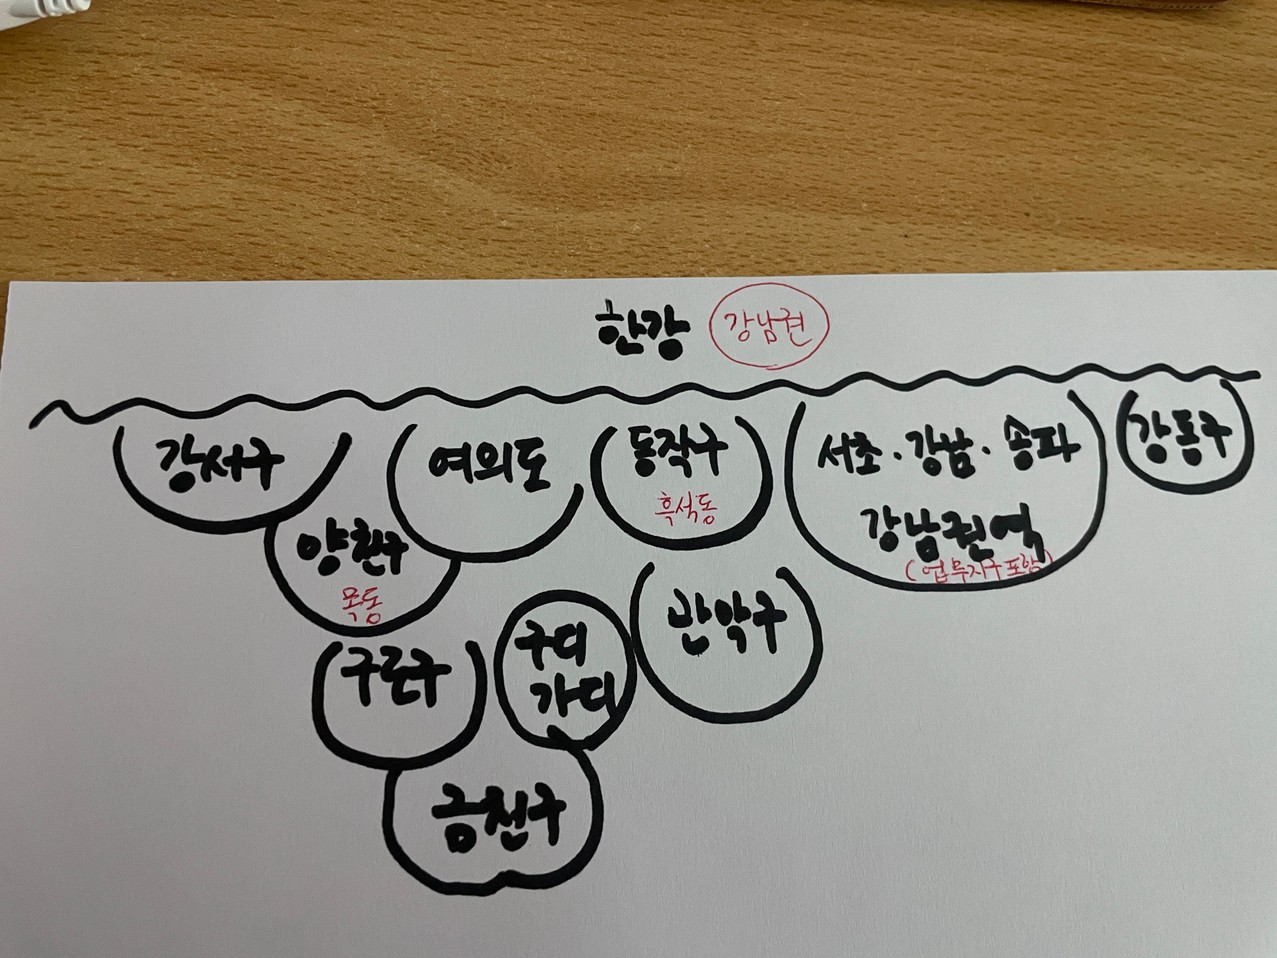 한강 강남권
강서구
여의도
동작구
흑석동
서초·강남·송파
강남권역
(업무지구포함)
강동구
양천구
목동
구로구
구디
가디
관악구
금천구